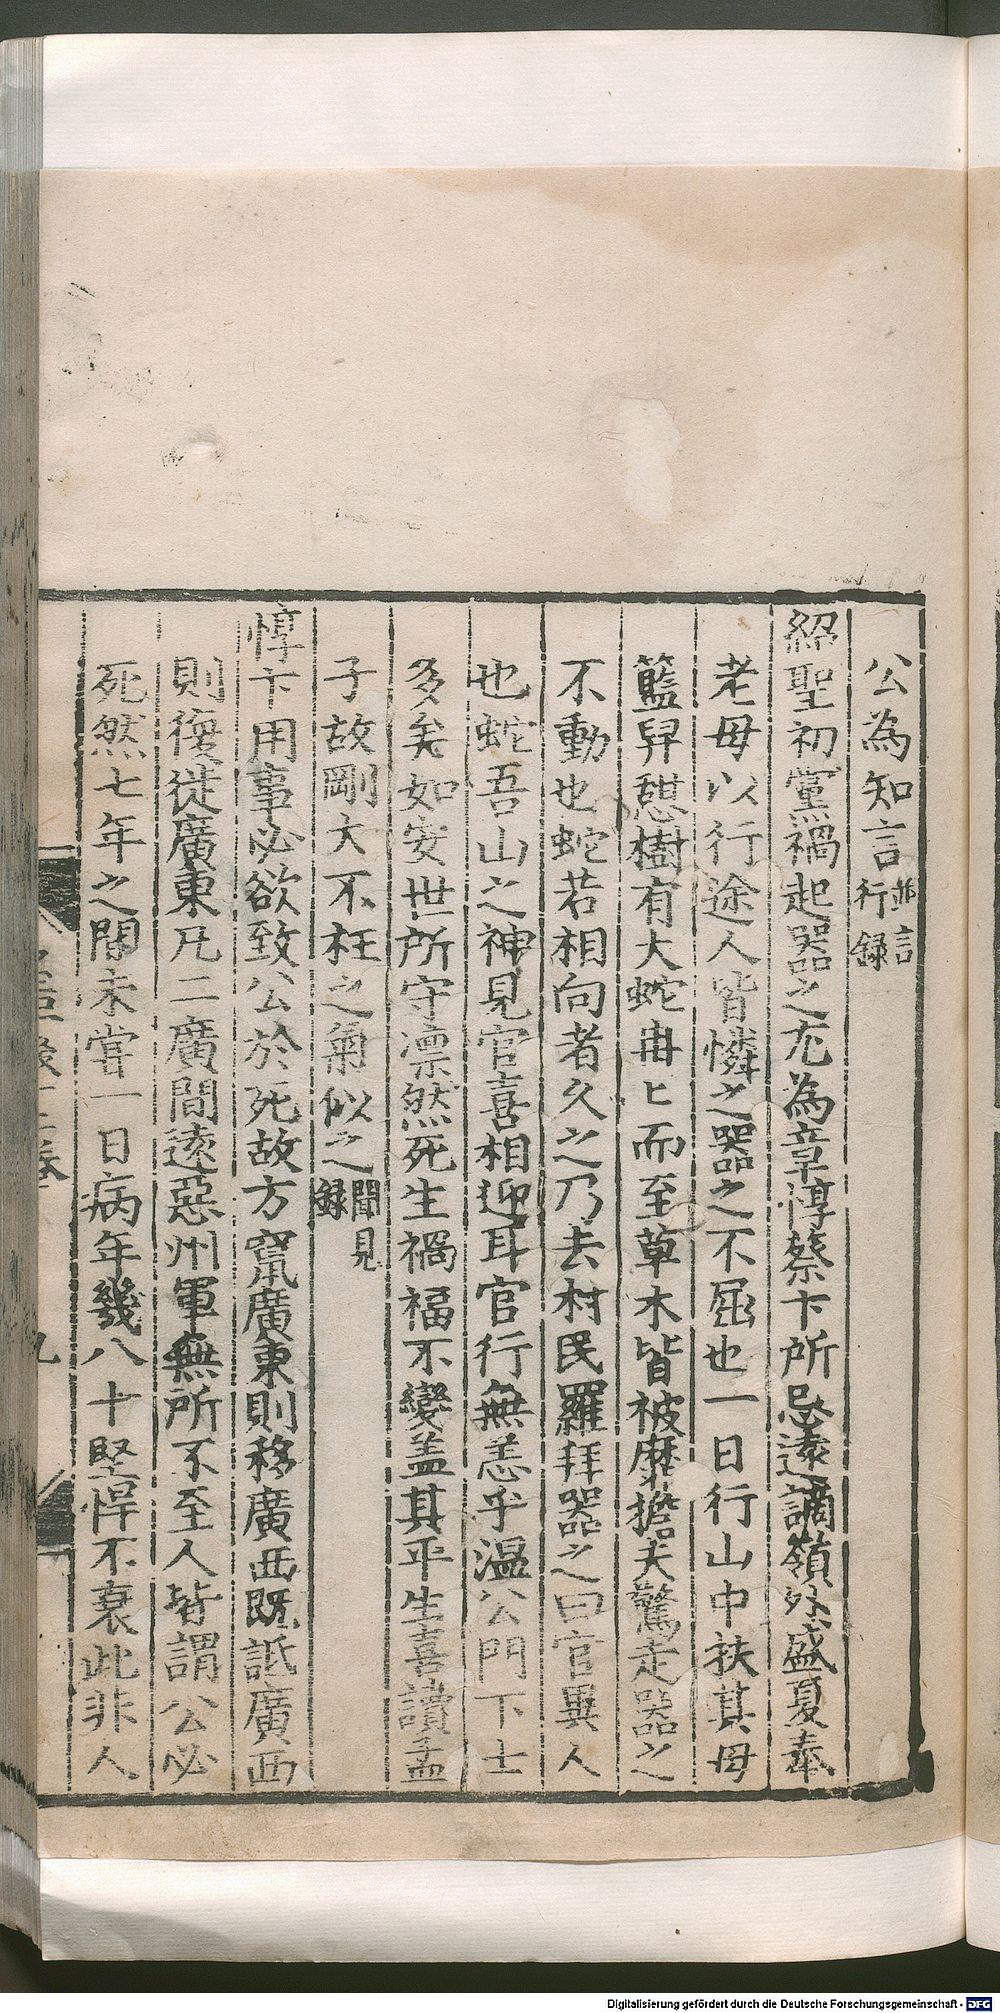 公為知言並言行録
紹聖初黨禍起器之尤為章惇蔡卞所忌遠謫嶺外盛夏奉
老母以行途人皆憐之器之不屈也一日行山中扶其母
籃舁憇樹有大蛇冉匕而至草木皆被靡擔夫驚走器之
不動也蛇若相向者久之乃去村民羅拜器之曰官異人
也蛇吾山之神見官喜相迎耳官行無恙乎温公門下士
多矣如安世所守凛然死生禍福不變盖其平生喜讀孟
子故剛大不枉之氣似之聞見録
惇卞用事必欲致公於死故方竄廣東則移廣西既詆廣西
則復徙廣東凡二廣間逺惡州軍無所不至人皆謂公必
死然七年之間未嘗一日病年幾八十堅悍不衰此非人
九
Digitalisierung gefördert durch die Deutsche Forschungsgemeinschaft - DFG